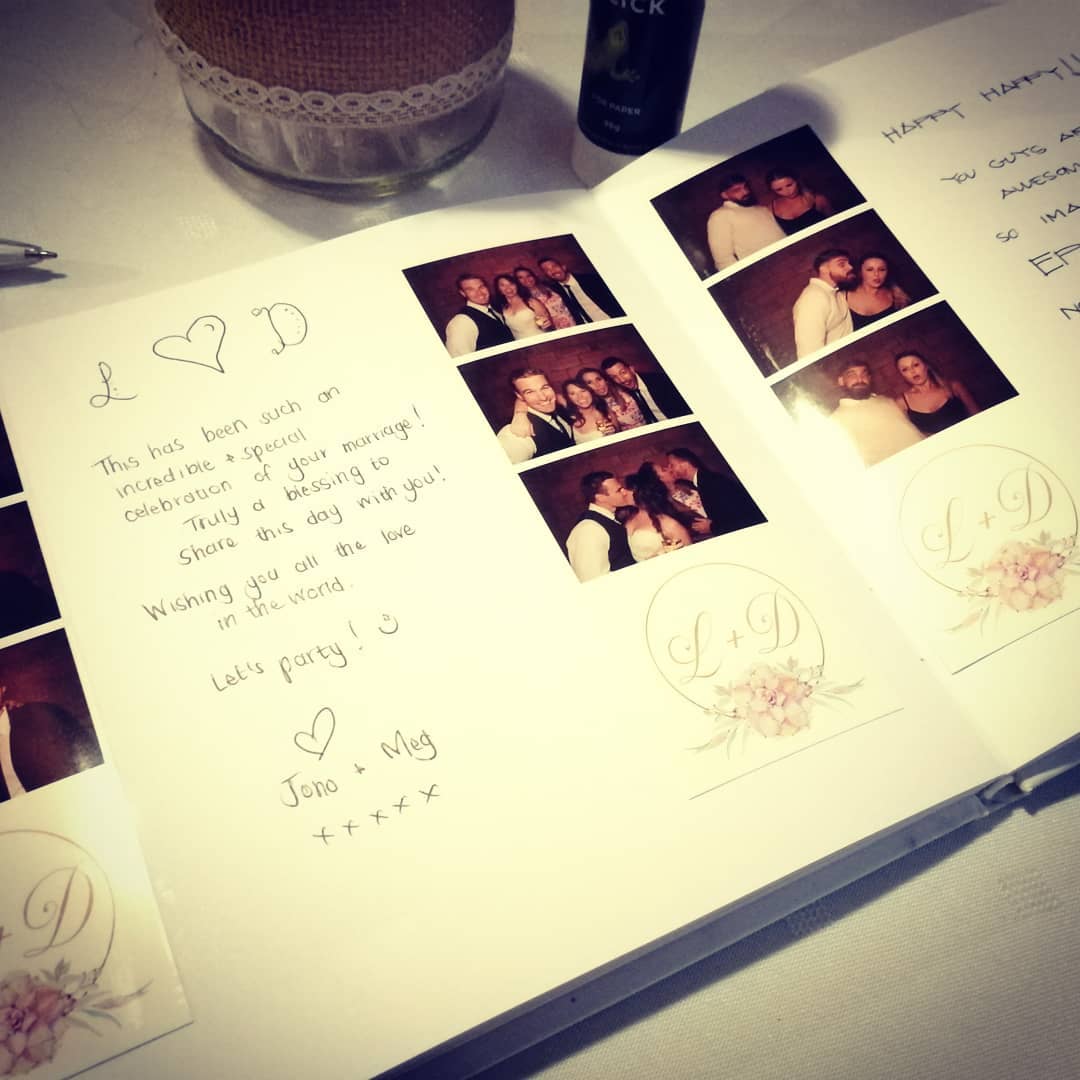 L ♡ D
This has been such an
incredible + special
celebration of your marriage!
Truly a blessing to
share this day with you!
Wishing you all the love
in the world.
Let's party! :)
♡
Jono + Meg
x x x x x
L + D
L + D
+ D
HAPPY HAPPY!!
YOU GUYS
SO
FOR PAPER